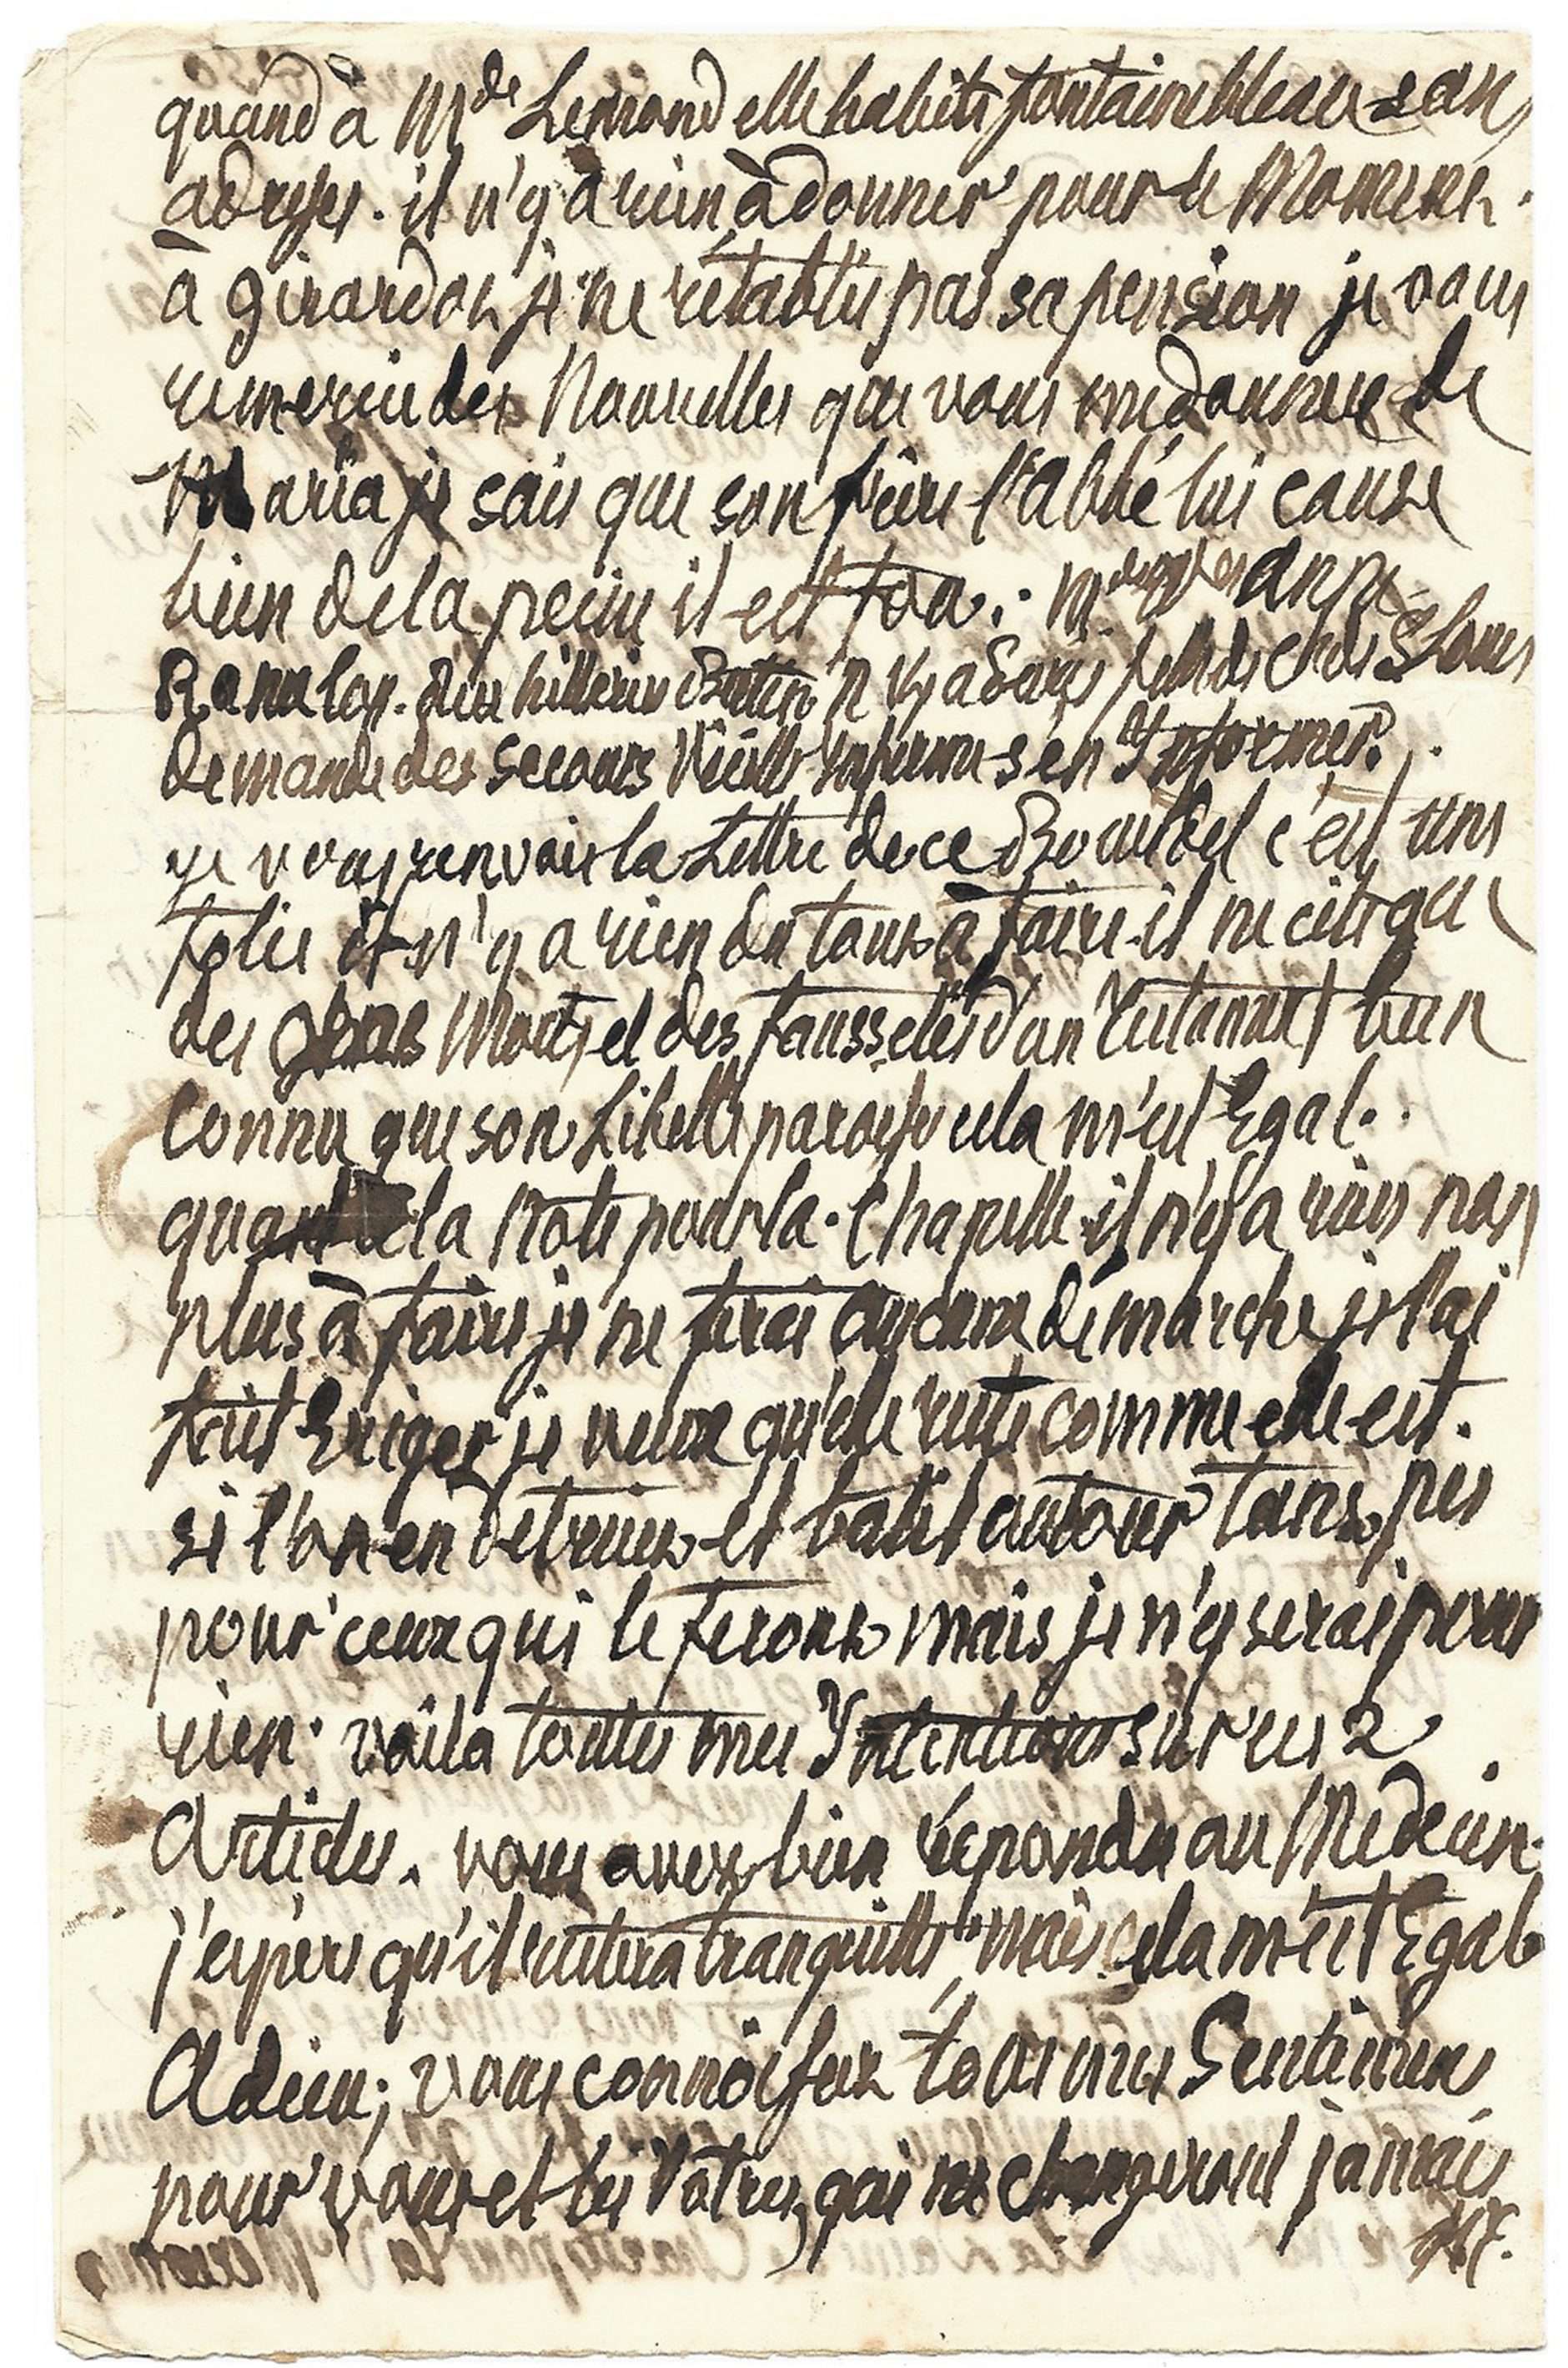 quand à Mde Lemand elle habite fontainebleau san
adresse. il n'y a rien à donner pour le Moment.
à girardot je ne rétablis pas sa pension je vous
remercie des Nouvelles que vous me donnez de
Maria je sais que son frère l'abbé lui cause
bien de la peine il est fou. Mde
demande des secours Vieille Infirme s'en Informer.
je vous renvoie la Lettre de ce c'est une
folie il n'y a rien du tout à faire il ne cite que
des gens Morts et des faussetés d'un bien
connu que son Libelle paroisse cela m'est Egal.
quant à la Note pour la Chapelle il n'y a rien non
plus à faire je ne ferai aucune démarche je l'ai
fait Eriger je veux qu'elle reste comme elle est.
si l'on en detruit et batit autour tans pis
pour ceux qui le feront mais je n'y serai pour
rien. voila toutes mes Intentions sur ces 2
Articles. vous avez bien répondu au Medecin.
j'espère qu'il restera tranquille mais cela m'est Egal
Adieu; vous connoissez tous mes Sentimens
pour vous et les Votres, qui ne changeront jamais